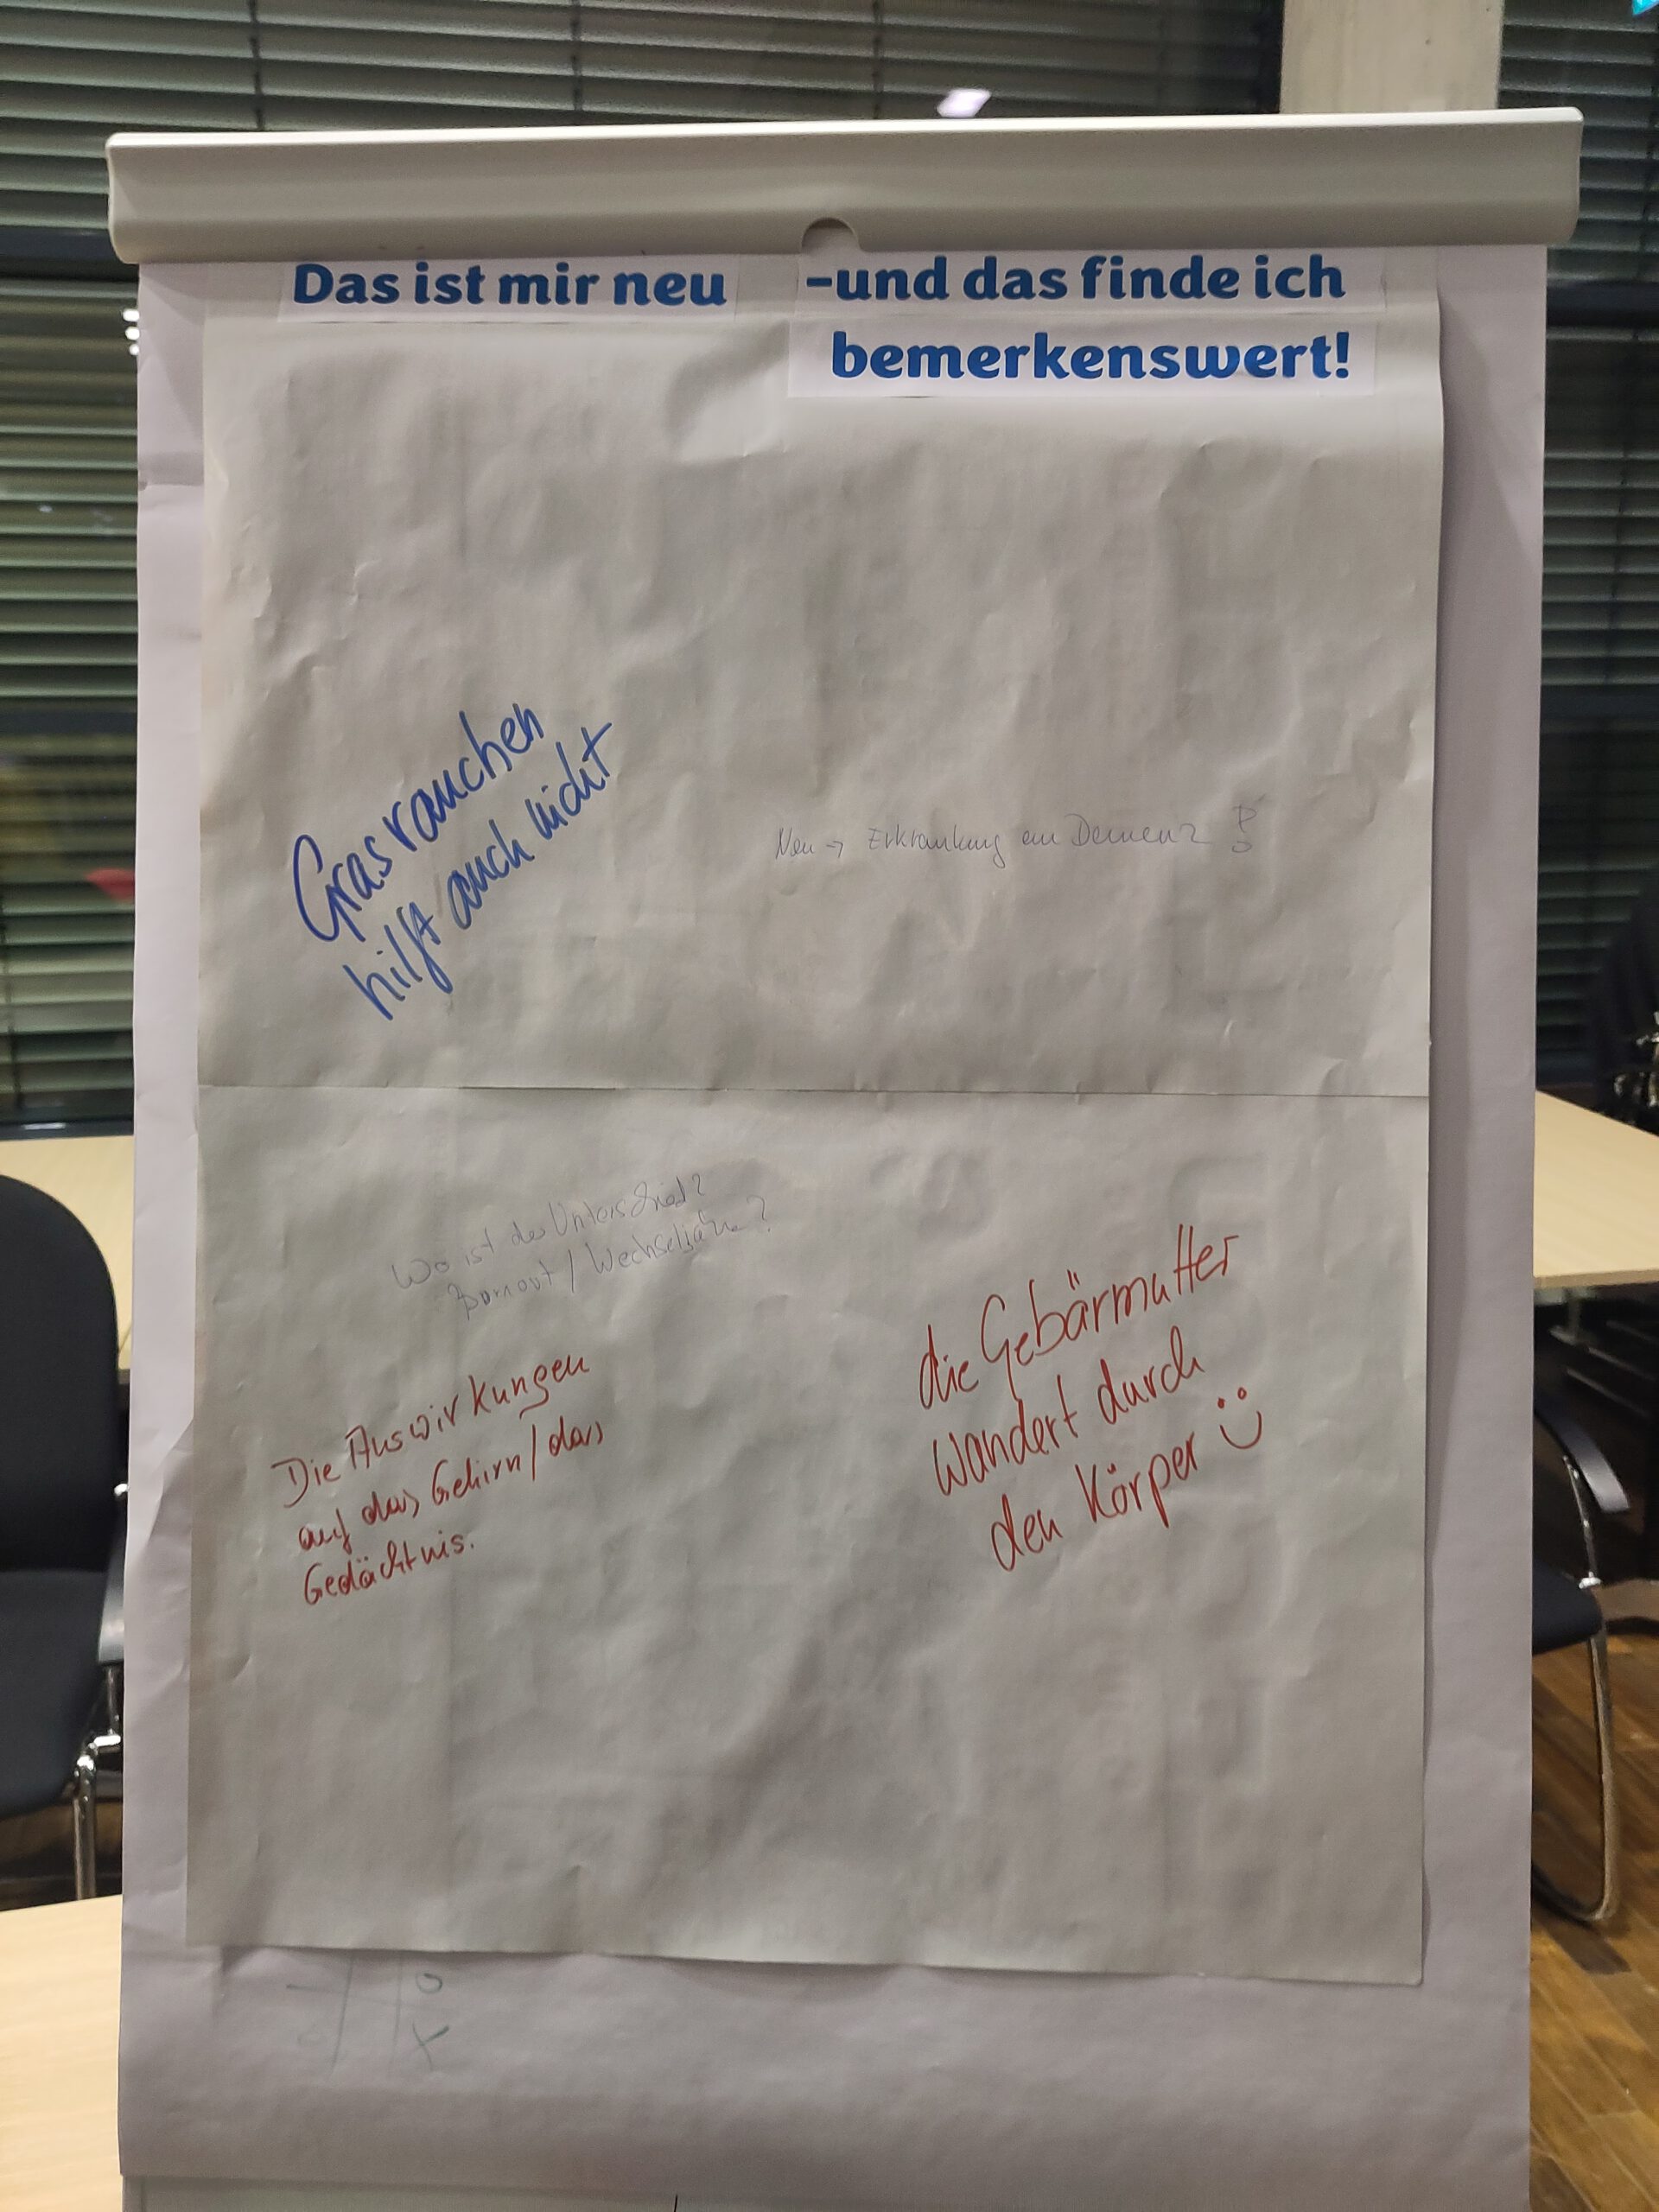 Das ist mir neu –und das finde ich
bemerkenswert!
Grasrauchen
hilft auch nicht
Neu → Erkrankung an Demenz
Wo ist der Unterschied?
Bornout / Wechseljahre?
Die Auswirkungen
auf das Gehirn/das
Gedächtnis.
die Gebärmutter
wandert durch
den Körper